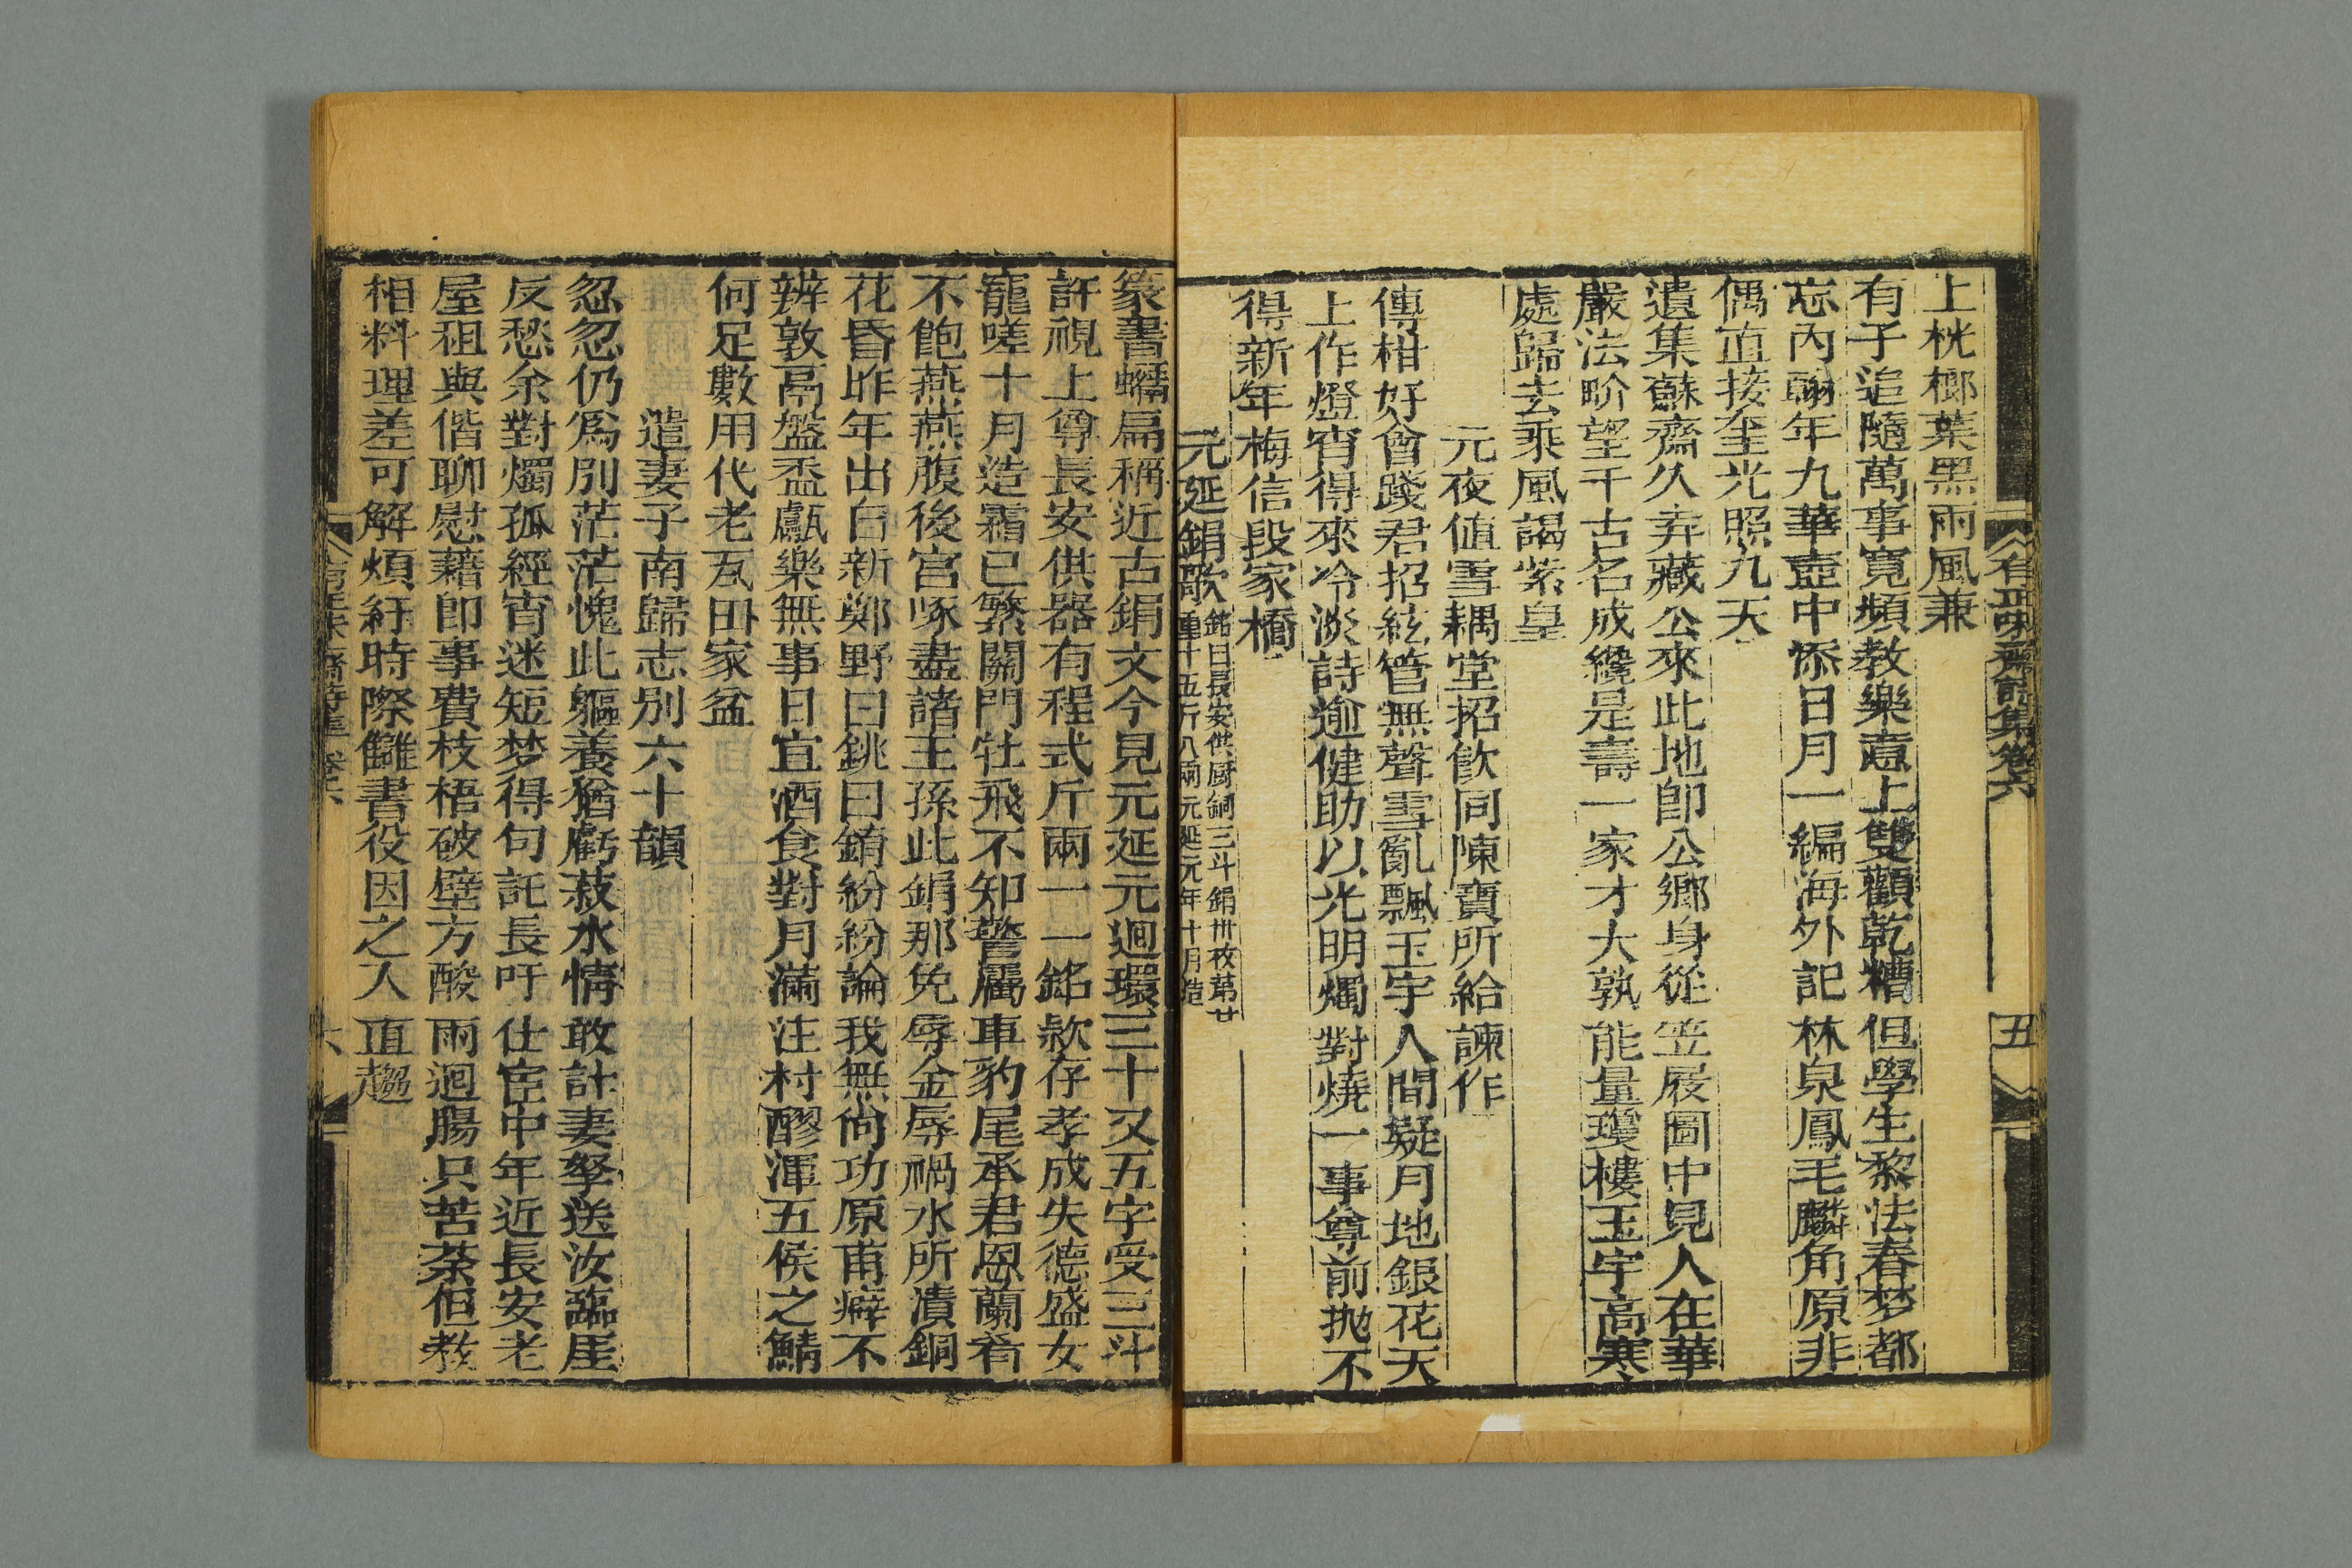 有正味齋詩集卷六
五
上桄榔葉黑雨風兼
有子追隨萬事寬頻教樂意上雙顴乾糟但學生黎法春梦都
忘內翰年九華壺中添日月一編海外記林泉鳳毛麟角原非
偶直接奎光照九天
遺集蘇齋久弆藏公來此地卽公鄉身從笠屐圖中見人在華
嚴法界望千古名成纔是壽一家才大孰能量瓊樓玉宇高寒
處歸去乘風謁紫皇
元夜値雪耦堂招飮同陳寶所給諫作
傳柑好會踐君招絃管無聲雪亂飄玉宇人間疑月地銀花天
上作燈宵得來冷淡詩逾健助以光明燭對燒一事尊前拋不
得新年梅信段家橋
元延鋗歌銘曰長安供厨銅三斗鋗卅枚苐廿
重十五斤八兩元延元年十月造
篆書蟠扁稱近古鋗文今見元延元迴環三十又五字受三斗
許視上尊長安供器有程式斤兩一一銘款存孝成失德盛女
寵嗟十月造霜已繁關門牡飛不知警屬車豹尾承君恩蘭肴
不飽燕燕腹後宮啄盡諸王孫此鋗那免辱金辱禍水所漬銅
花昏昨年出自新鄭野曰銚曰銷紛紛論我無尙功原甫癖不
辨敦鬲盤盉甗樂無事日宜酒食對月滿注村醪渾五侯之鯖
何足數用代老瓦田家盆
遣妻子南歸志別六十韻
忽忽仍爲別茫茫愧此軀養猶虧菽水情敢計妻孥送汝臨厓
反愁余對燭孤經宵迷短梦得句託長吁仕宦中年近長安老
屋租與偕聊慰藉卽事費枝梧破壁方酸雨迴腸只苦荼但教
相料理差可解煩紆時際讎書役因之入直趨
有正味齋詩集卷六
六